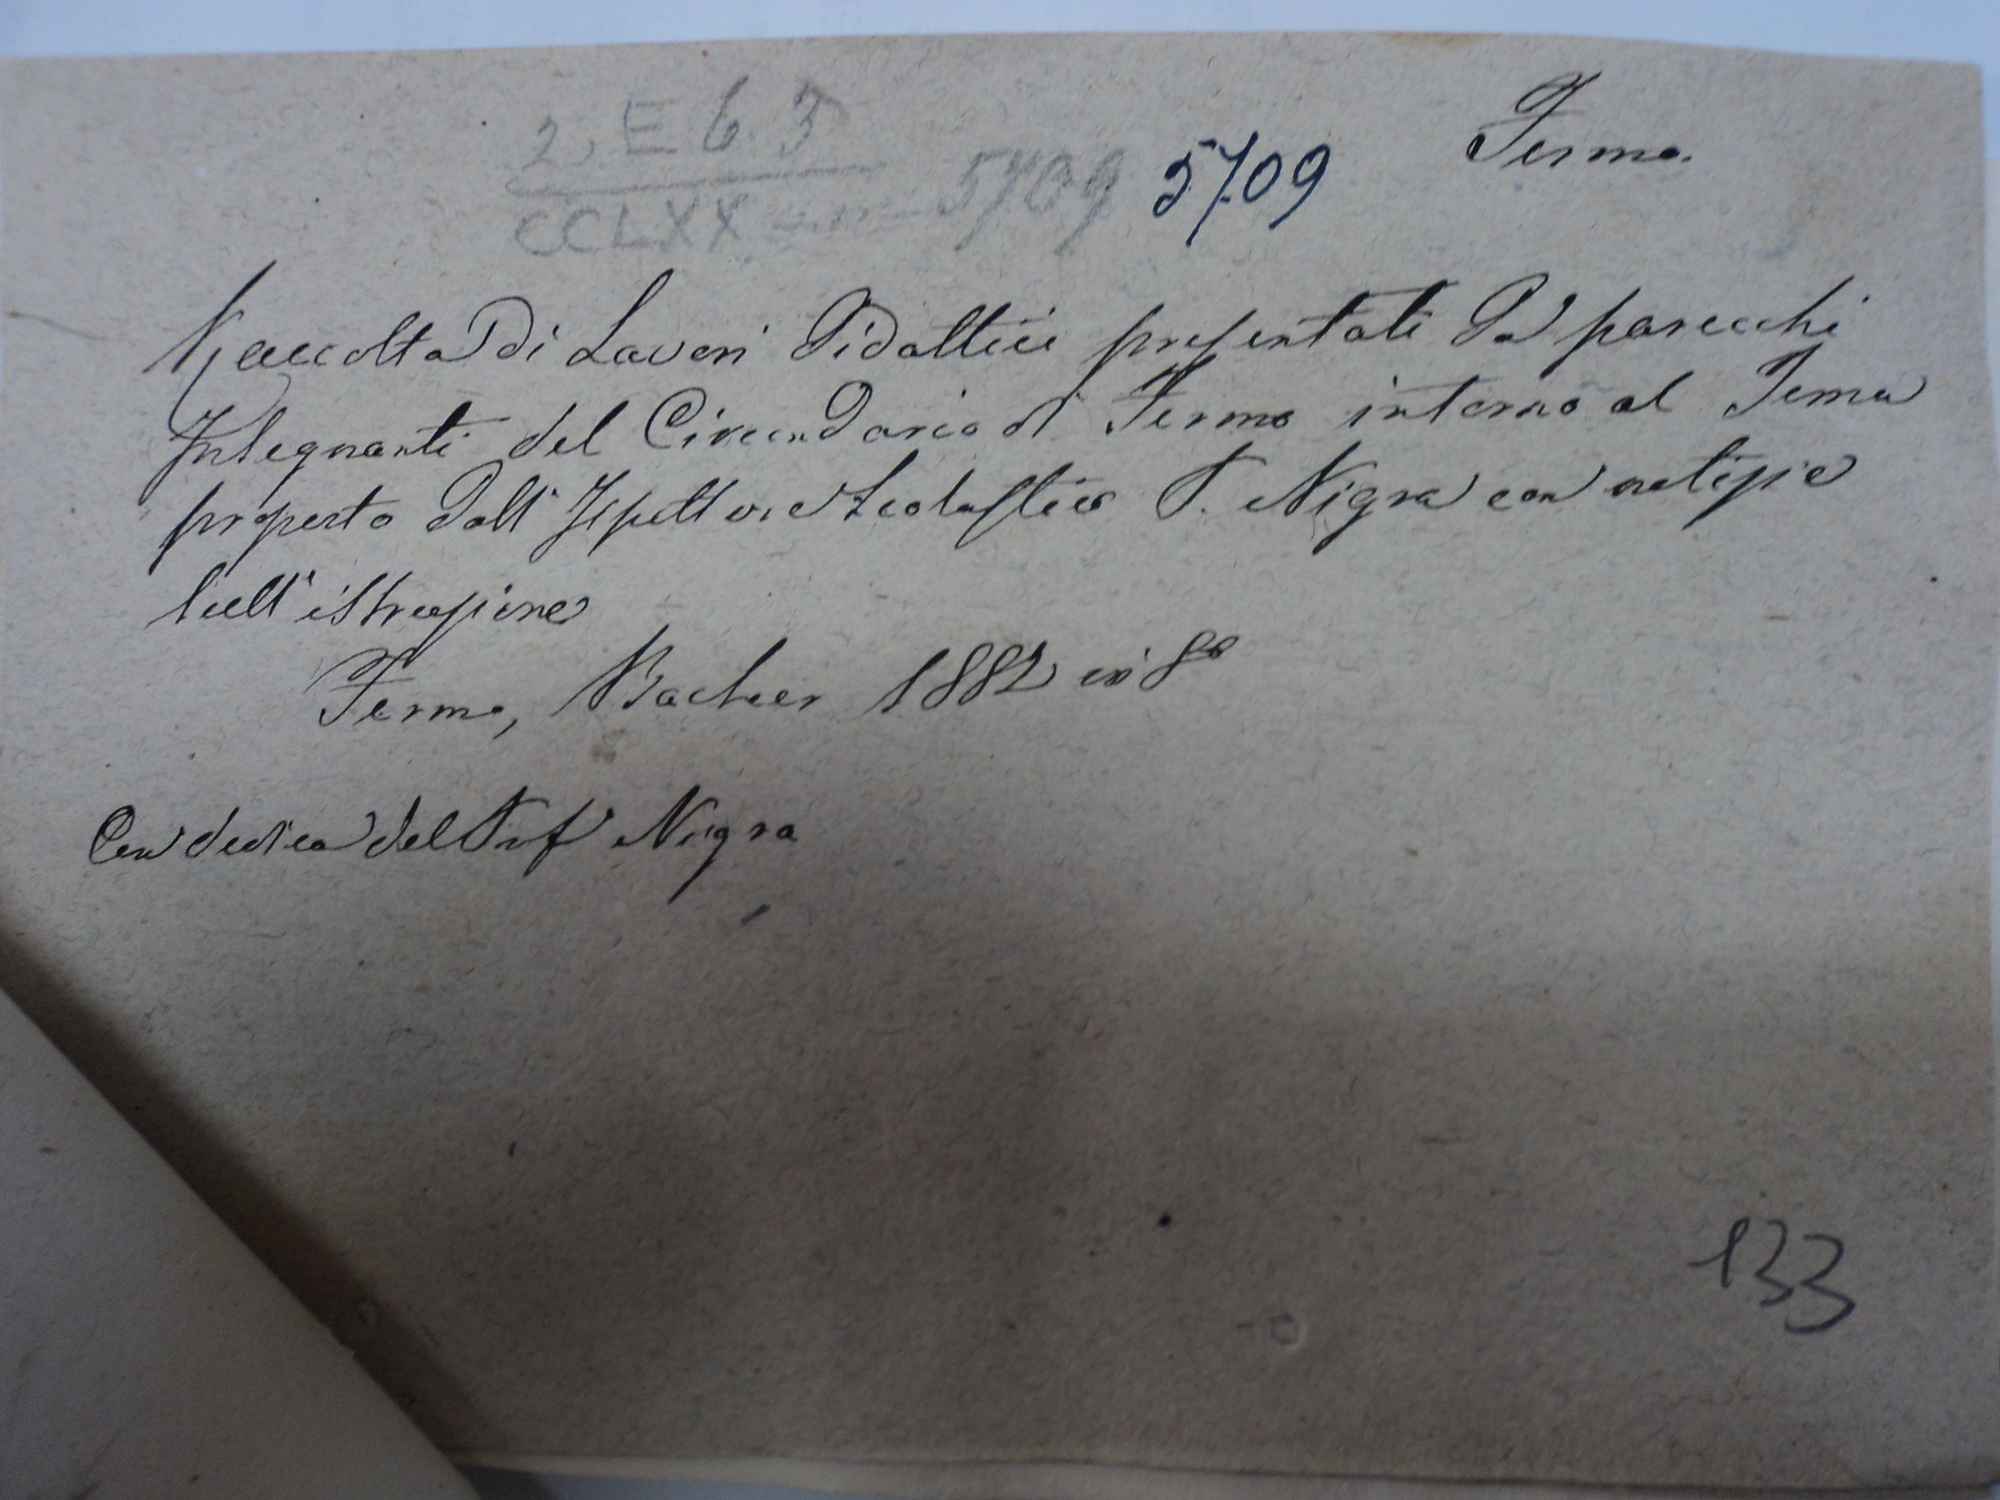 Fermo.
2, E 6. 5
CCLXX 5709 5709
Raccolta di Lavori Didattici presentati da parecchi
Insegnanti del Circondario di Fermo intorno al Tema
proposto dall'Ispettore Scolastico P. Nigra con notizie
sull'istruzione
Fermo, Bacher 1882 in 8º
Con dedica del Prof Nigra
133